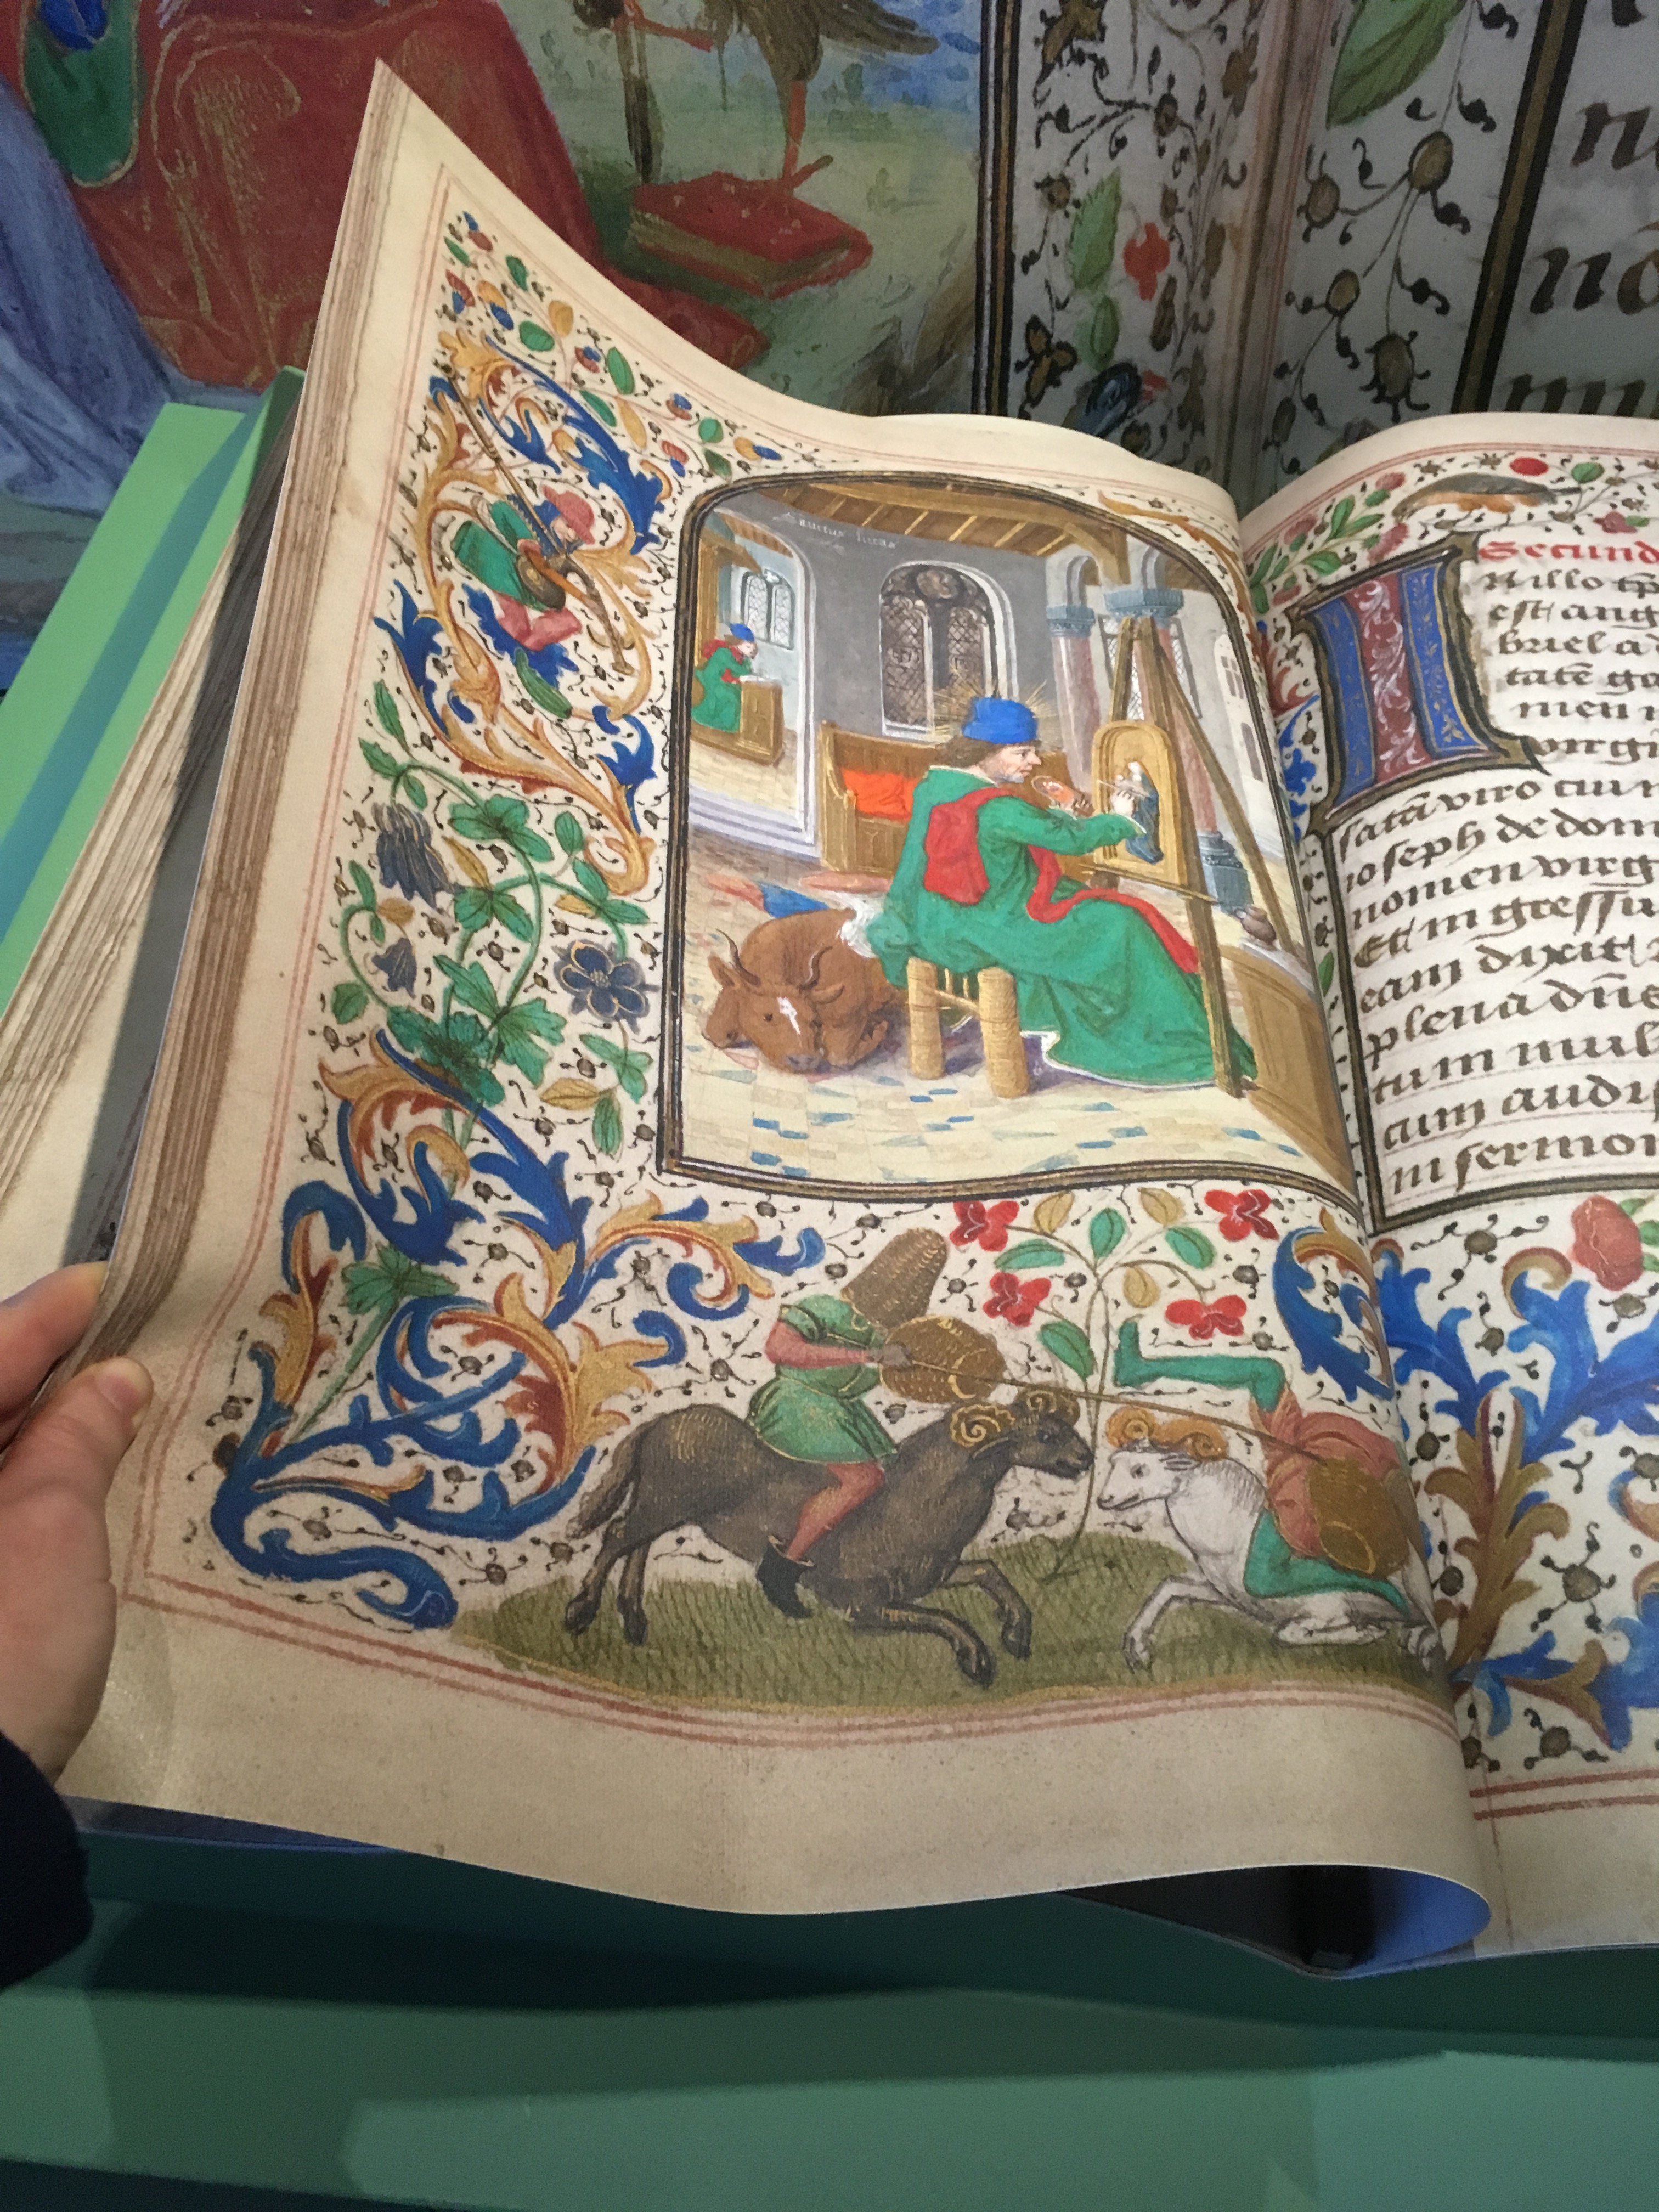 Sanctus lucas
Secund
N illo tp̄
est ang
briel a
tatē ga
meñ
virgi
satā viro cui n
ioseph de dom
nomen virg
Et ingressu
eam dixit
plena dñs
tum mul
cum audis
in sermon